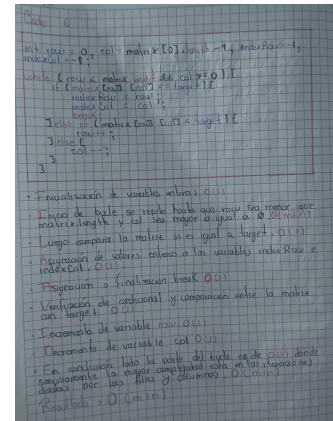 Code 4
int row = 0, col = matrix [0].length - 1, indexRow = -1,
indexCol = -1;
while ( row < matrix.length && col >= 0 ) {
if (matrix [row] [col] == target) {
indexRow = row;
indexCol = col;
break;
} else if (matrix [row] [col] < target) {
row++;
} else {
col--;
}
}
• Inicialización de variables enteras O(1)
• Inicio de bucle se repite hasta que row sea menor que
matrix.length y col sea mayor o igual a 0 O(m+n)
• Luego compara la matriz si es igual a target. O(1)
• Asignación de valores enteros a las variables indexRow e
indexCol. O(1)
• Asignación a finalización break O(1)
• Verificación de condicional y comparación entre la matriz
con target O(1)
• Incremento de variable row O(1)
• Decremento de variable col O(1)
• En conclusión toda la parte del bucle es de O(1) donde
sencillamente la mayor complejidad esta en las iteraciones
dadas por las filas y columnas O(m+n)
Resultado = O(m+n)